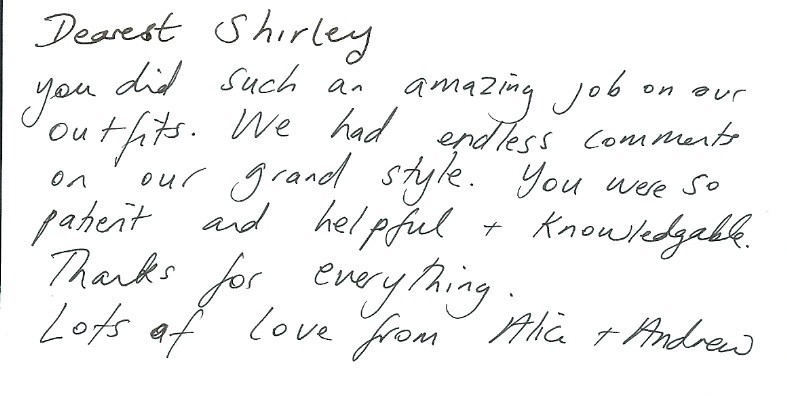 Dearest Shirley
you did such an amazing job on our
outfits. We had endless comments
on our grand style. You were so
patient and helpful + Knowledgable.
Thanks for everything.
Lots of love from Alice + Andrew